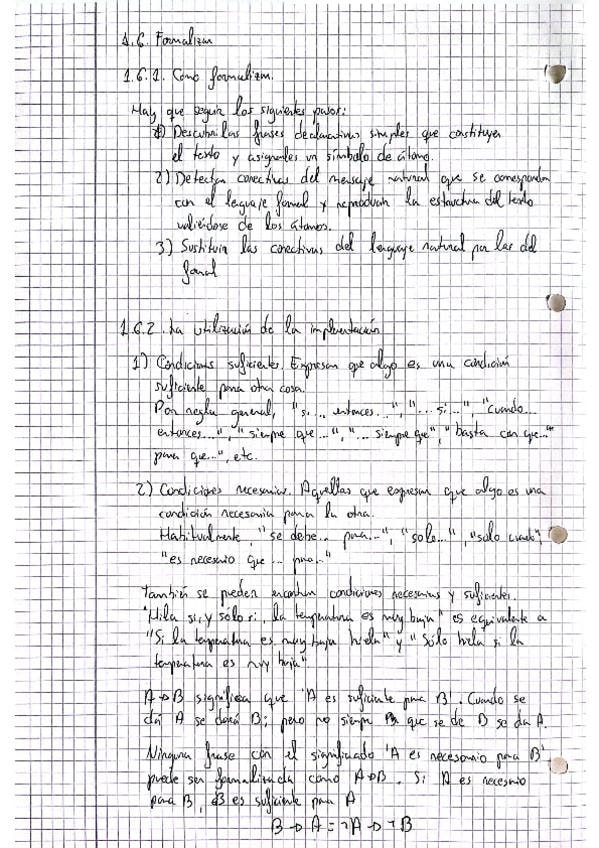 1.6. Formalizar
1.6.1. Como formalizar.
Hay que seguir los siguientes pasos:
1) Descubrir las frases declarativas simples que constituyen
el texto y asignarles un símbolo de átomo.
2) Detectar conectivas del mensaje natural que se correspondan
con el leguaje formal y reproducir la estructura del texto
valiéndose de los átomos.
3) Sustituir las conectivas del lenguaje natural por las del
formal
1.6.2. La utilización de la implementación
1) Condiciones suficientes. Expresan que algo es una condición
suficiente para otra cosa.
Por regla general, "si... entonces...", "... si...", "cuando...
entonces...", "siempre que...", "... siempre que", "basta con que..."
para que...", etc.
2) Condiciones necesarias. Aquellas que expresan que algo es una
condición necesaria para la otra.
Habitualmente, "se debe... para...", "solo...", "solo cuando",
"es necesario que ... para..."
También se pueden encontrar condiciones necesarias y suficientes.
"Hiela si, y sólo si, la temperatura es muy baja" es equivalente a
"Si la temperatura es muy baja hiela" y "Sólo hiela si la
temperatura es muy baja"
A→B significa que 'A es suficiente para B'. Cuando se
dá A se dará B; pero no siempre que se de B se da A.
Ninguna frase con el significado 'A es necesario para B'
puede ser formalizada como A→B. Si A es necesario
para B, B es suficiente para A
B → A = ¬A → ¬B